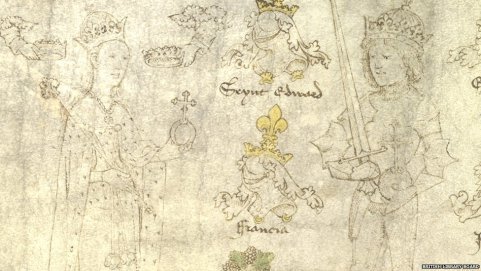 Seynt Edward
Francia
BRITISH LIBRARY BOARD